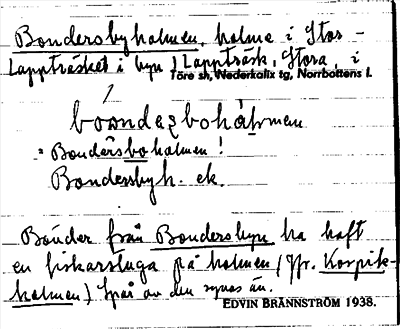 Bondersbyholmen, holme i Stor-
Lappträsket i byn Lappträsk, Stora, i
Töre sn, Nederkalix tg, Norrbottens l.
= Bondersboholmen!
Bondersbyh. ek.
Bönder från Bondersbyn ha haft
en fiskarstuga på holmen (Jfr. Korpik-
holmen) Spår av den synas än.
EDVIN BRÄNNSTRÖM 1938.